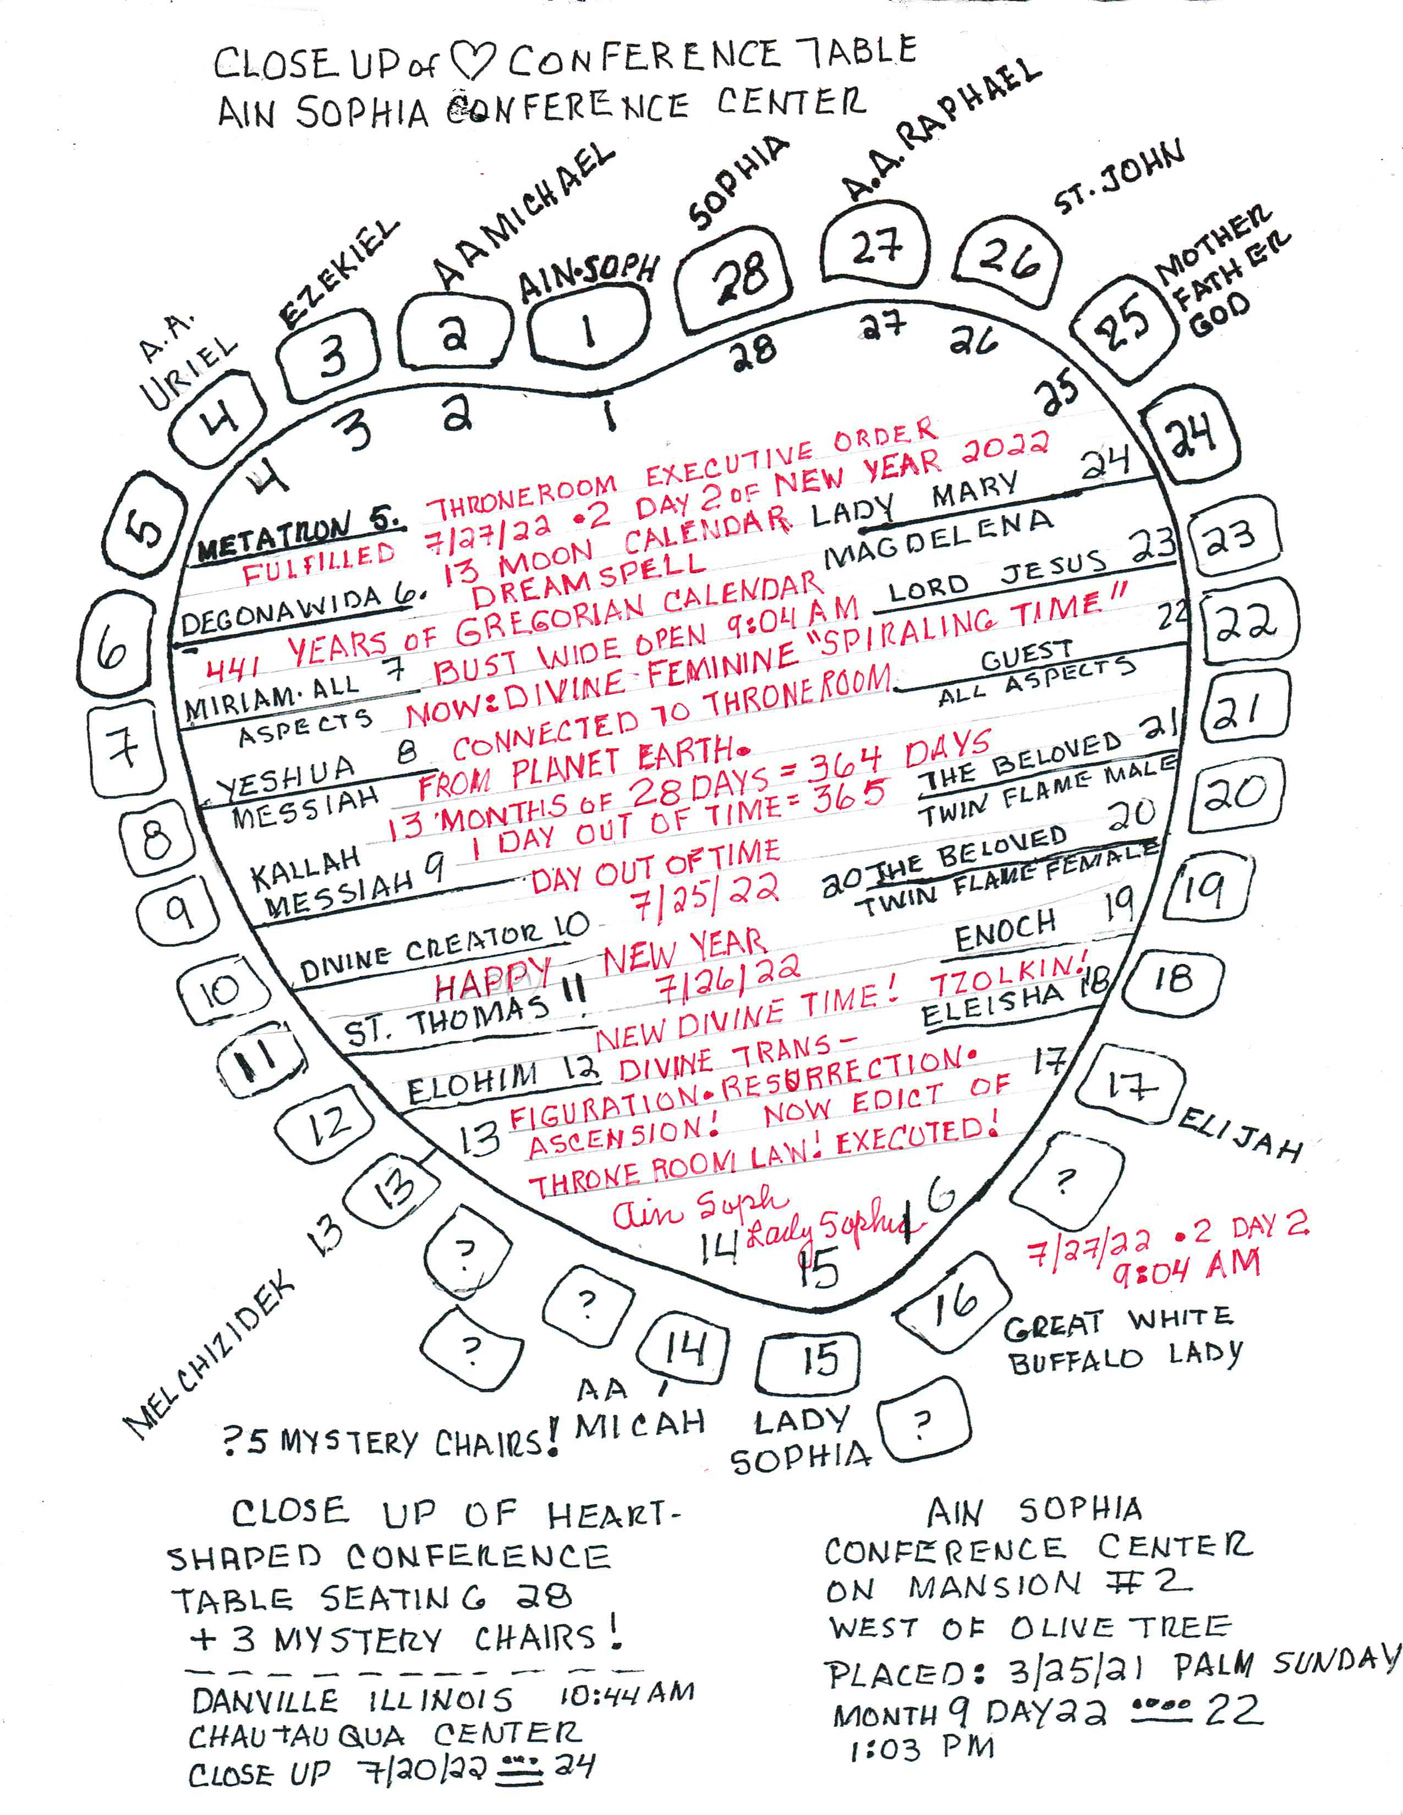 CLOSE UP of ♡ CONFERENCE TABLE
AIN SOPHIA CONFERENCE CENTER
A.A. URIEL
EZEKIEL
AA MICHAEL
AIN·SOPH
SOPHIA
A.A. RAPHAEL
ST. JOHN
MOTHER
FATHER
GOD
4
3
2
1
28
27
26
25
24
4
3
2
1
28
27
26
25
24
THRONEROOM EXECUTIVE ORDER
METATRON 5.
7/27/22 •2 DAY 2 OF NEW YEAR 2022
FULFILLED
13 MOON CALENDAR
LADY MARY
MAGDELENA
DEGONAWIDA 6.
DREAMSPELL
441 YEARS OF GREGORIAN CALENDAR
LORD JESUS 23
MIRIAM·ALL 7
ASPECTS
BUST WIDE OPEN 9:04 AM
22
NOW: DIVINE·FEMININE "SPIRALING TIME"
GUEST
ALL ASPECTS
YESHUA 8
MESSIAH
CONNECTED TO THRONEROOM
FROM PLANET EARTH.
THE BELOVED 21
TWIN FLAME MALE
13 MONTHS OF 28 DAYS = 364 DAYS
KALLAH
MESSIAH 9
1 DAY OUT OF TIME = 365
20 THE BELOVED 20
TWIN FLAME FEMALE
DAY OUT OF TIME
7/25/22
DIVINE CREATOR 10
ENOCH 19
HAPPY NEW YEAR
7/26/22
ST. THOMAS 11
NEW DIVINE TIME! TZOLKIN!
ELEISHA 18
ELOHIM 12
DIVINE TRANS-
FIGURATION•RESURRECTION•
17
13
ASCENSION! NOW EDICT OF
THRONE ROOM LAW! EXECUTED!
Ain Soph
Lady Sophia
14
15
16
5
6
7
8
9
10
11
12
13
23
22
21
20
19
18
17
ELIJAH
?
7/27/22 •2 DAY 2
9:04 AM
16
GREAT WHITE
BUFFALO LADY
MELCHIZIDEK 13
?
?
?
14
15
?
AA
MICAH
LADY
SOPHIA
?5 MYSTERY CHAIRS!
CLOSE UP OF HEART-
SHAPED CONFERENCE
TABLE SEATING 28
+ 3 MYSTERY CHAIRS!
DANVILLE ILLINOIS 10:44 AM
CHAUTAUQUA CENTER
CLOSE UP 7/20/22 24
AIN SOPHIA
CONFERENCE CENTER
ON MANSION #2
WEST OF OLIVE TREE
PLACED: 3/25/21 PALM SUNDAY
MONTH 9 DAY 22 22
1:03 PM